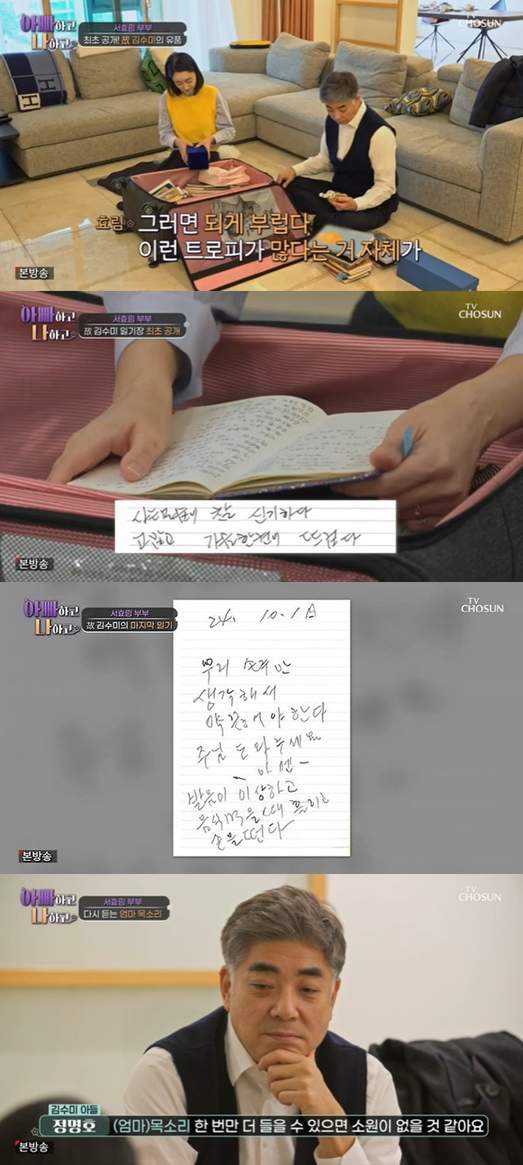 아빠하고
나하고
서효림 부부
최초 공개! 故 김수미의 유품
TV
CHOSUN
효림
그러면 되게 부럽다
이런 트로피가 많다는 거 자체가
본방송
아빠하고
나하고
서효림 부부
故 김수미 일기장 최초 공개
TV
CHOSUN
참 신기하다
고맙고 가슴 한켠이 뜨겁다
본방송
아빠하고
나하고
서효림 부부
故 김수미의 마지막 일기
TV
CHOSUN
24. 10. 1日
우리 조이만
생각해서
약 끊어야 한다
주님 도와주세요
아멘
발음이 이상하고
음식 먹을 때 흘리고
손을 떤다
본방송
아빠하고
나하고
서효림 부부
다시 듣는 엄마 목소리
TV
CHOSUN
김수미 아들
정명호 (엄마)목소리 한 번만 더 들을 수 있으면 소원이 없을 것 같아요
본방송